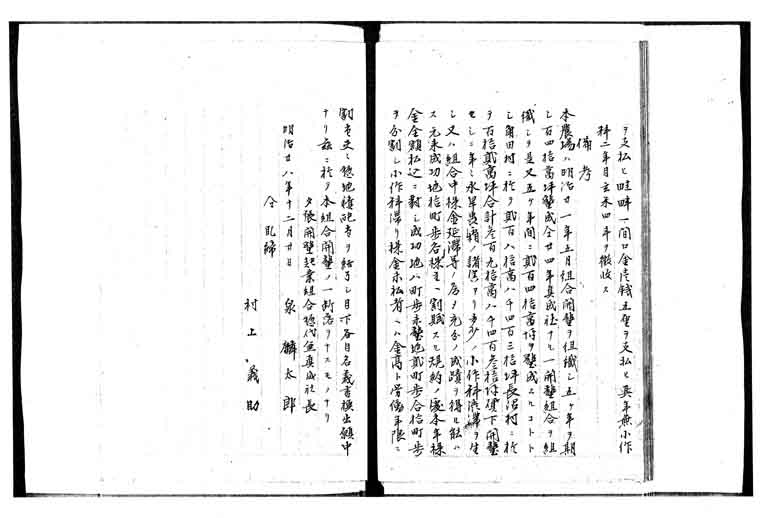 ヲ支払ヒ畦畔一間ロ金壱銭五厘ヲ支払ヒ其年無小作
料二年目玄米四斗ヲ徴收ス
備考
本農場ハ明治廿一年五月組合開墾ヲ組織シ五ヶ年ヲ期
シ百四拾万坪墾成仝廿四年真成社ナル一開墾組合ヲ組
織シヲ是又五ヶ年間ニ貳百四拾万坪ヲ墾成スルコトト
シ角田村ニ於テ貳百八拾万八千四百三拾坪長沼村ニ於
テ百拾貳万坪合計參百九拾万八千四百參拾坪貸下開墾
セシニ年ミ水旱虫霜ノ諸災アリ多少ノ小作料渋滞ヲ生
シ又ハ組合中株金延滞等ノ為メ充分ノ成蹟ヲ得ル能ハ
ス元来成功地拾町歩各株主ヘ割賦スル規約ノ處本年株
金全額払込ニ對シ成功地八町歩未墾地貳町歩合拾町歩
ヲ分割シ小作料滞リ株金未払者ヘハ金高ト労働年限ニ
割当夫ミ熟地穣配当ヲ結了シ目下各自名義書換出願中
ナリ茲ニ於テ本組合開墾ノ一断落ヲナスモノナリ
夕張開墾起業組合総代兼真成社長
明治廿八年十二月廿日 泉 麟太郎
仝取締
村上義助